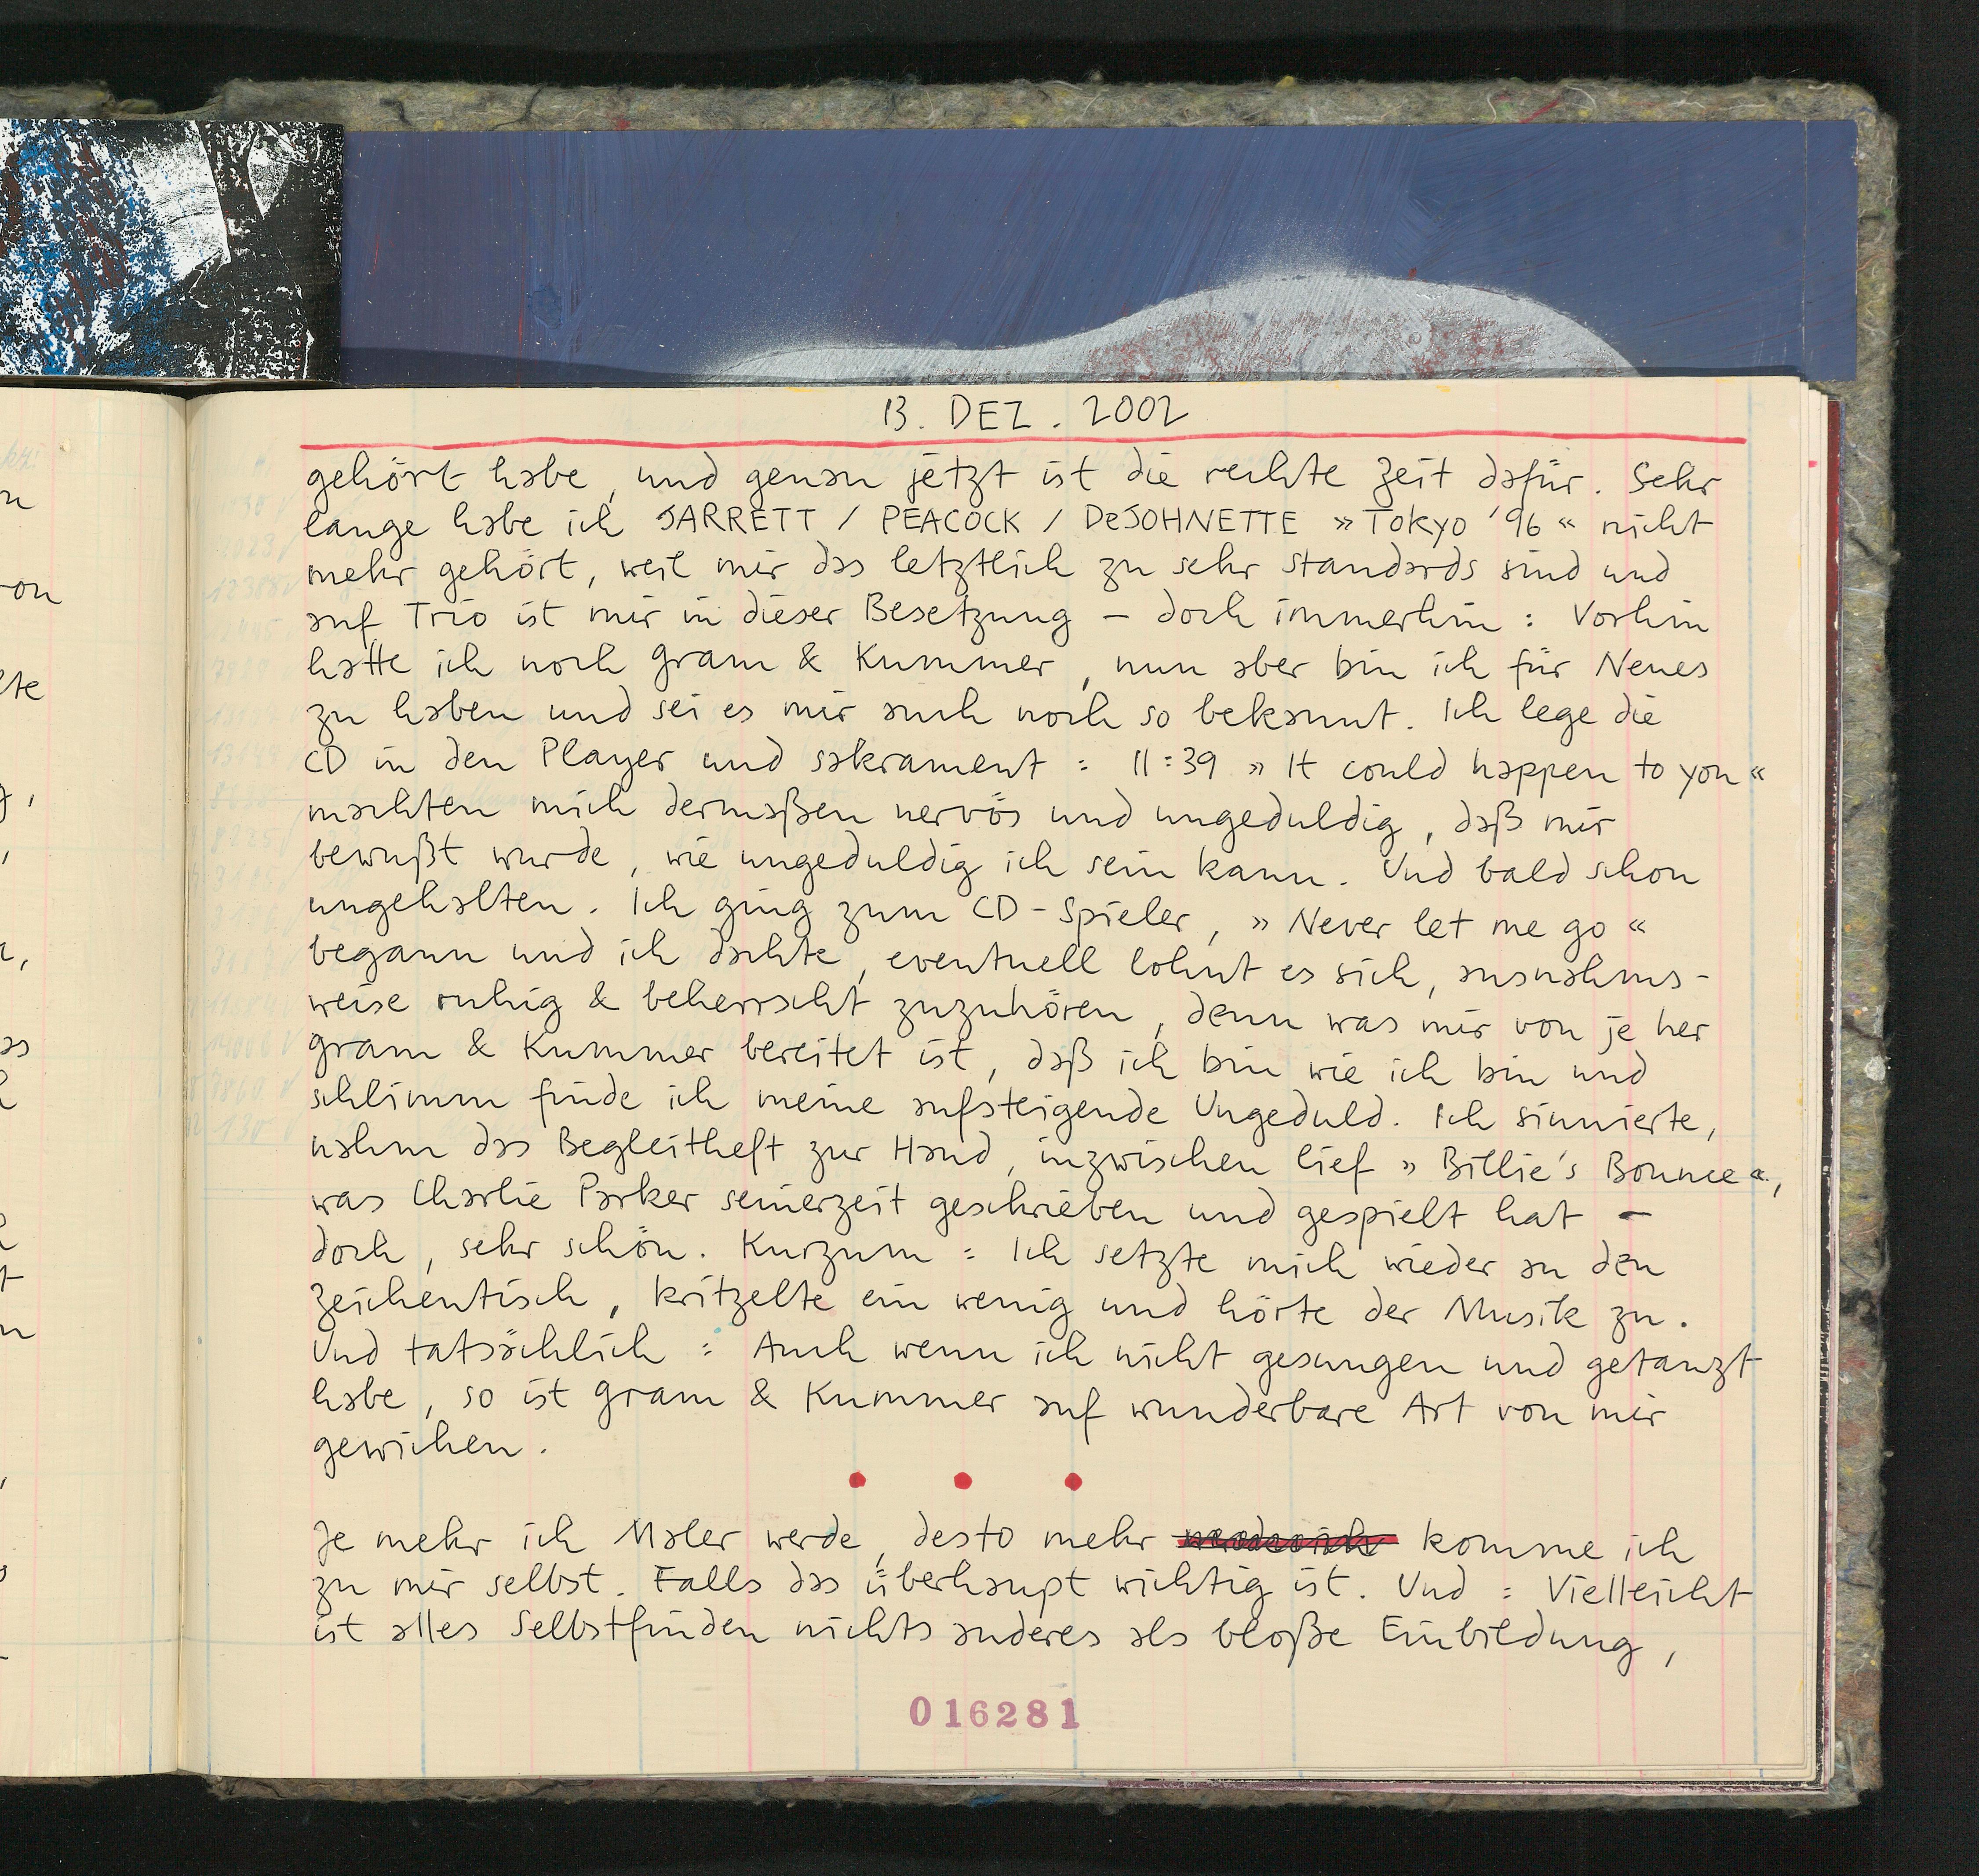 13. DEZ. 2002
gehört habe, und genau jetzt ist die rechte Zeit dafür. Sehr
lange habe ich JARRETT / PEACOCK / DeJOHNETTE » Tokyo '96 « nicht
mehr gehört, weil mir das letztlich zu sehr Standards sind und
auf Trio ist mir in dieser Besetzung – doch immerhin : Vorhin
hatte ich noch Gram & Kummer, nun aber bin ich für Neues
zu haben und sei es mir auch noch so bekannt. Ich lege die
CD in den Player und sakrament : 11:39 » It could happen to you «
machten mich dermaßen nervös und ungeduldig, daß mir
bewußt wurde, wie ungeduldig ich sein kann. Und bald schon
ungehalten. Ich ging zum CD-Spieler, » Never let me go «
begann und ich dachte, eventuell lohnt es sich, ausnahms-
weise ruhig & beherrscht zuzuhören, denn was mir von je her
Gram & Kummer bereitet ist, daß ich bin wie ich bin und
schlimm finde ich meine aufsteigende Ungeduld. Ich sinnierte,
nahm das Begleitheft zur Hand, inzwischen lief » Billie's Bounce «,
was Charlie Parker seinerzeit geschrieben und gespielt hat –
doch, sehr schön. Kurzum : Ich setzte mich wieder an den
Zeichentisch, kritzelte ein wenig und hörte der Musik zu.
Und tatsächlich : Auch wenn ich nicht gesungen und getanzt
habe, so ist Gram & Kummer auf wunderbare Art von mir
gewichen.
Je mehr ich Maler werde, desto mehr komme ich
zu mir selbst. Falls das überhaupt wichtig ist. Und : Vielleicht
ist alles Selbstfinden nichts anderes als bloße Einbildung,
016281